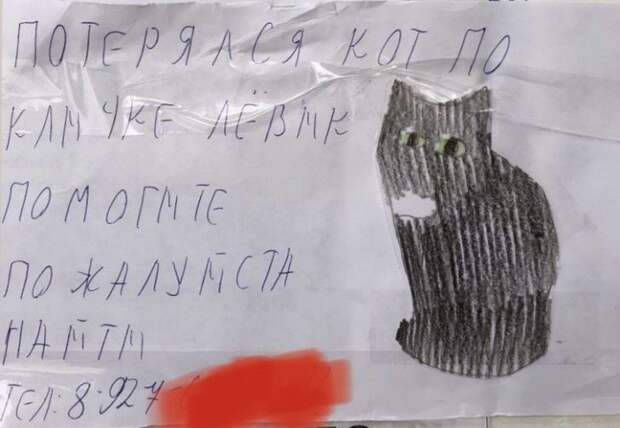 ПОТЕРЯЛСЯ КОТ ПО
КЛИЧКЕ ЛЁВИК
ПОМОГИТЕ
ПОЖАЛУЙСТА
НАЙТИ
ТЕЛ: 8-927